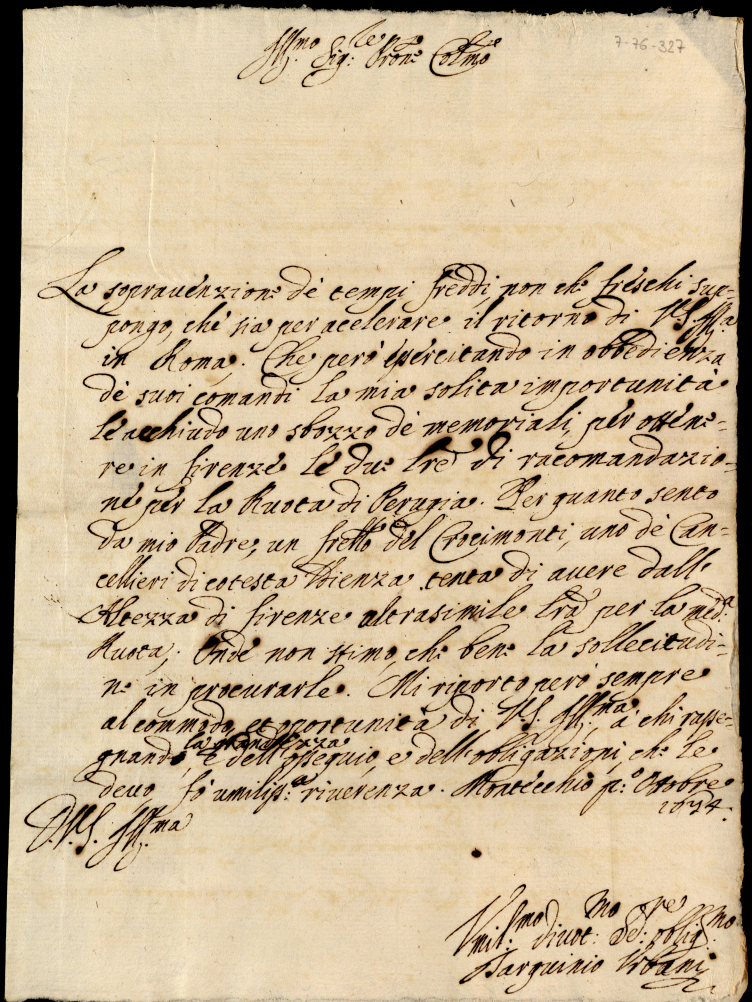 7-76-327
Ill.mo Sig.re Pron.e Col.mo
La sopravenzione de tempi freddi, non che freschi sup=
pongo, che sia per acelerare il ritorno di V.S. Ill.ma
in Roma. Che però esercitando in obbedienza
de suoi comandi la mia solita importunità
le acchiudo uno sbozzo de memoriali per otten=
re in firenze le due lre di racomandazio=
ne per la Ruota di Perugia. Per quanto sento
da mio Padre, un frello del Crocimonti, uno de Can=
cellieri di cotesta Udienza tenta di avere dall'
Altezza di firenze altra simile lra per la med.a
Ruota; Onde non stimo, che bene la sollecitudi=
ne in procurarle. Mi riporto però sempre
al commodo, et oportunità di V.S. Ill.ma, a chi rasse=
gnando la grandezza e dell'ossequio, e dell'obligazioni, che le
devo, fo umiliss.a riverenza. Montecchio p.o Ottobre
1674.
D.V.S. Ill.ma
Vmil.mo divot.mo Se.re oblig.mo
Tarquinio Urbani